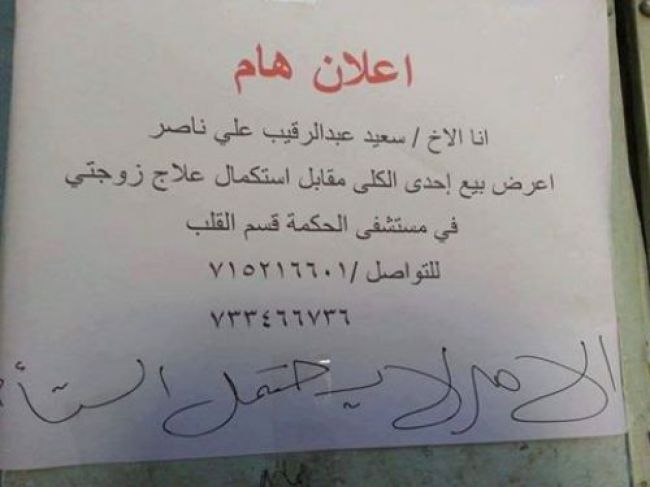 اعلان هام
انا الاخ / سعيد عبدالرقيب علي ناصر
اعرض بيع إحدى الكلى مقابل استكمال علاج زوجتي
في مستشفى الحكمة قسم القلب
للتواصل / ٧١٥٢١٦٦٠١
٧٣٣٤٦٦٧٣٦
الامر لا يحتمل التأ